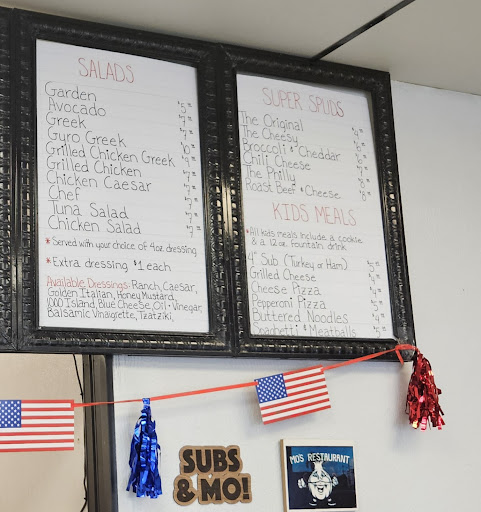 SALADS
Garden
Avocado
Greek
Gyro Greek
Grilled Chicken Greek
Grilled Chicken
Chicken Caesar
Chef
Tuna Salad
Chicken Salad
* Served with your choice of 4oz dressing
* Extra dressing $1 each
Available Dressings: Ranch, Caesar,
Golden Italian, Honey Mustard,
1000 Island, Blue Cheese, Oil & Vinegar,
Balsamic Vinaigrette, Tzatziki,
SUPER SPUDS
The Original
The Cheesy
Broccoli & Cheddar
Chili Cheese
The Philly
Roast Beef & Cheese
KIDS MEALS
* All kids meals include a cookie
& a 12oz. fountain drink
4" Sub (Turkey or Ham)
Grilled Cheese
Cheese Pizza
Pepperoni Pizza
Buttered Noodles
Spaghetti & Meatballs
SUBS
& MO!
MO'S RESTAURANT